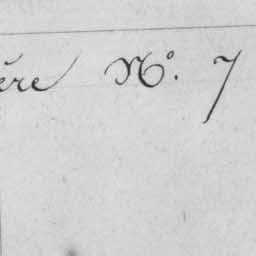 ère Nº. 7